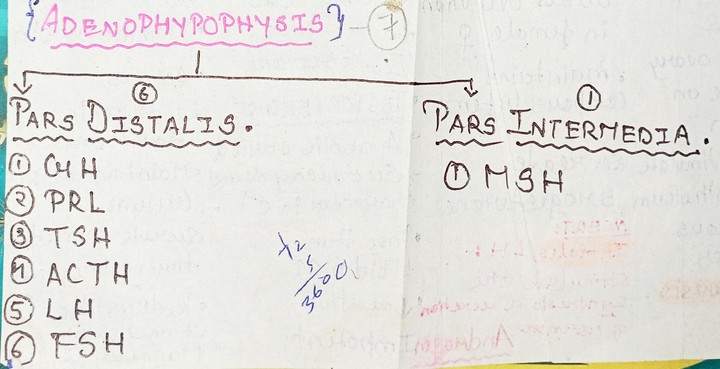 {ADENOPHYPOPHYSIS} - 7
6
PARS DISTALIS.
1 GH
2 PRL
3 TSH
4 ACTH
5 LH
6 FSH
1
PARS INTERMEDIA.
1 MSH